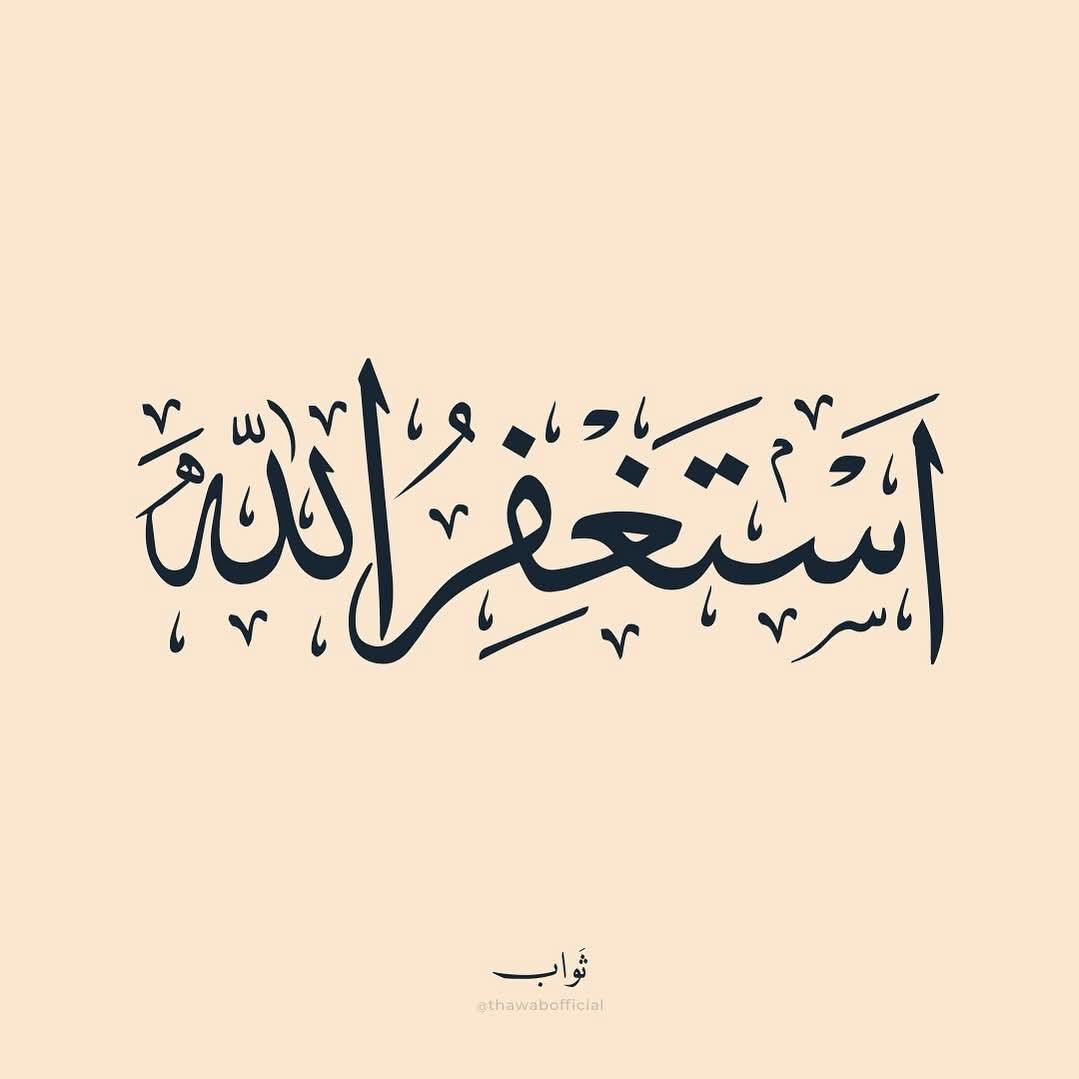 اَسْتَغْفِرُ اللّٰهَ
ثَواب
@thawabofficial